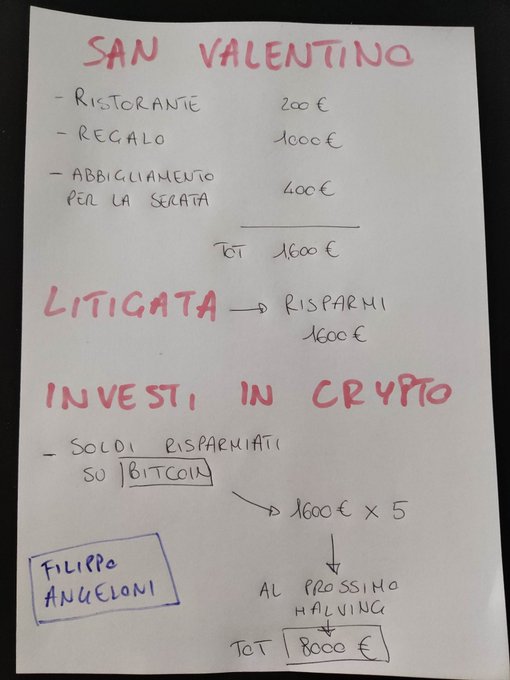 SAN VALENTINO
- RISTORANTE 200 €
- REGALO 1000 €
- ABBIGLIAMENTO
PER LA SERATA 400 €
TOT 1,600 €
LITIGATA → RISPARMI
1600 €
INVESTI IN CRYPTO
- SOLDI RISPARMIATI
SU BITCOIN
→ 1600 € x 5
↓
AL PROSSIMO
HALVING
↓
TOT 8000 €
FILIPPO
ANGELONI